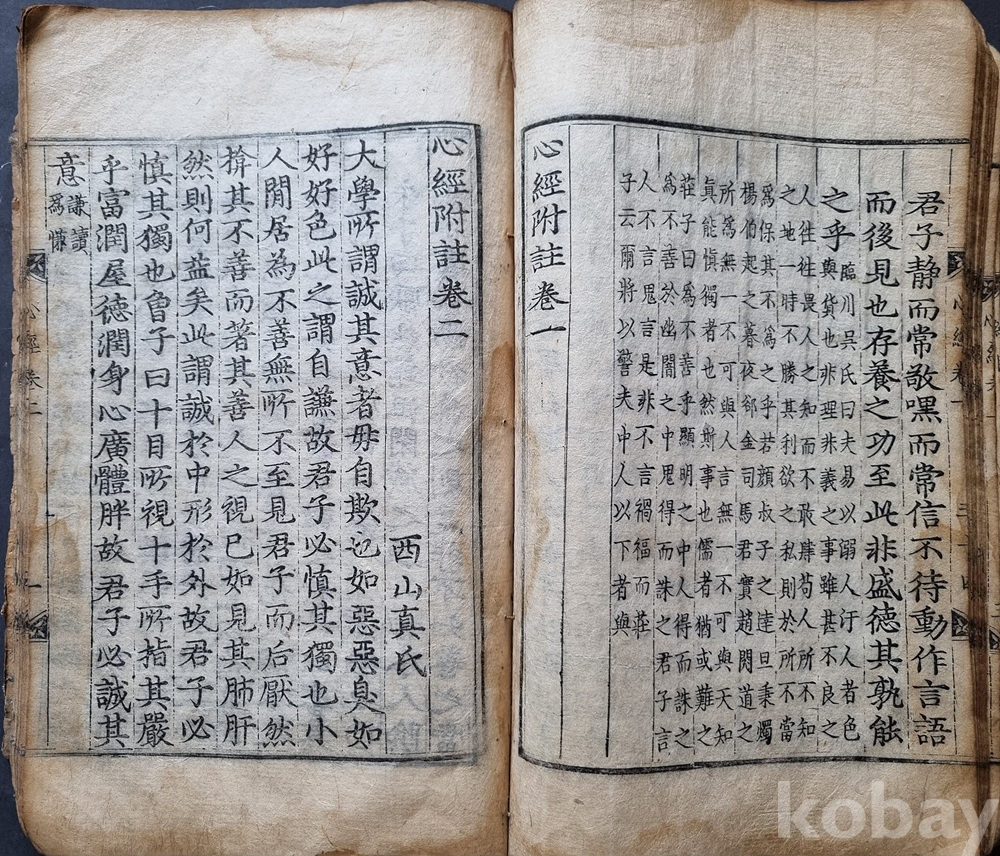 君子静而常敬嘿而常信不待動作言語
而後見也存養之功至此非盛德其孰能
之乎
臨川吳氏曰夫易以溺人汙人者色
與貨也非理非義之事雖甚不良之
人往往畏人之知而不敢肆苟人所不知
之地一時不勝其利欲之私則於所不當
爲保其不爲之乎若顔叔子之達旦秉燭
楊伯起之暮夜郤金司馬君實趙閱道之
所爲無一不可與人言無一不可與天知
眞能愼獨者也然斯事也儒者猶或難之
莊子曰爲不善乎顯明之中人得而誅之
爲不善於幽闇之中鬼得而誅之君子言
人不言鬼言是非不言禍福而莊
子云爾將以警夫中人以下者與
心經附註卷一
心經附註卷二
西山真氏
大學所謂誠其意者毋自欺也如惡惡臭如
好好色此之謂自謙故君子必慎其獨也小
人閒居為不善無所不至見君子而后厭然
揜其不善而著其善人之視己如見其肺肝
然則何益矣此謂誠於中形於外故君子必
慎其獨也曾子曰十目所視十手所指其嚴
乎富潤屋德潤身心廣體胖故君子必誠其
意
謙讀
爲慊
心經卷二
一
心經卷一
kobay